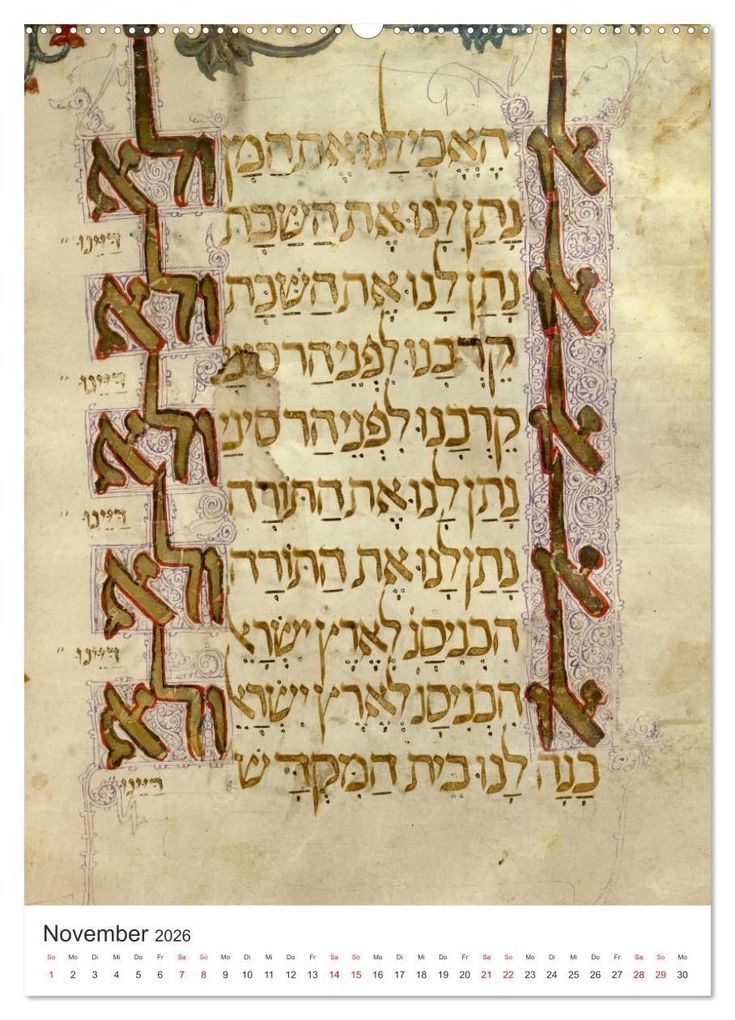 אל הֶאֱכִילָנוּ אֶת הַמָּן ולא
נָתַן לָנוּ אֶת הַשַּׁבָּת דַּיֵּינוּ
אל נָתַן לָנוּ אֶת הַשַּׁבָּת ולא
קֵרְבָנוּ לִפְנֵי הַר סִינַי דַּיֵּינוּ
אל קֵרְבָנוּ לִפְנֵי הַר סִינַי ולא
נָתַן לָנוּ אֶת הַתּוֹרָה דַּיֵּינוּ
אל נָתַן לָנוּ אֶת הַתּוֹרָה ולא
הִכְנִיסָנוּ לְאֶרֶץ יִשְׂרָאֵל דַּיֵּינוּ
אל הִכְנִיסָנוּ לְאֶרֶץ יִשְׂרָאֵל ולא
בָּנָה לָנוּ בֵּית הַמִּקְדָּשׁ דַּיֵּינוּ
November 2026
So Mo Di Mi Do Fr Sa So Mo Di Mi Do Fr Sa So Mo Di Mi Do Fr Sa So Mo Di Mi Do Fr Sa So Mo
1 2 3 4 5 6 7 8 9 10 11 12 13 14 15 16 17 18 19 20 21 22 23 24 25 26 27 28 29 30